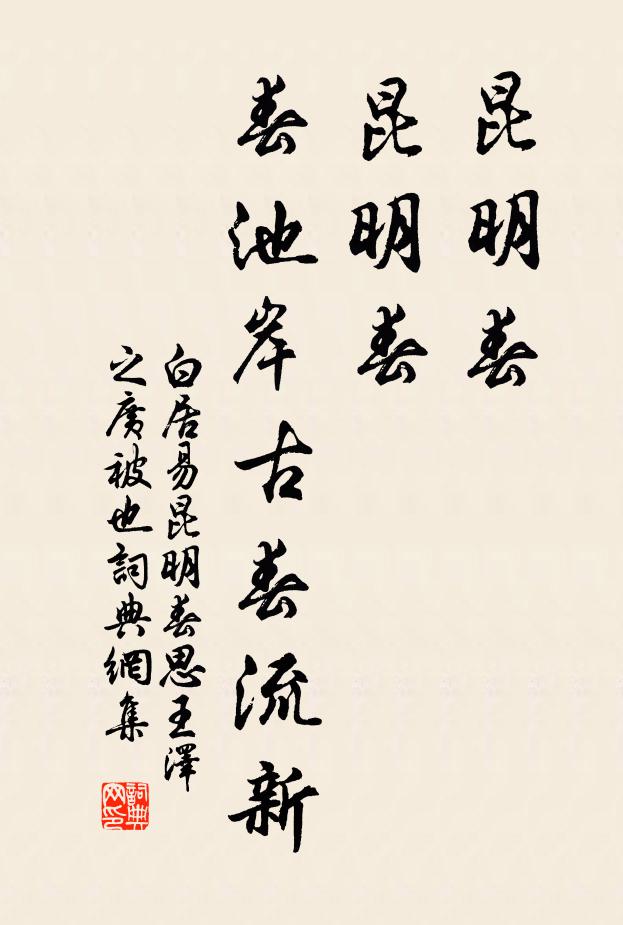 昆明春
昆明春
春池岸古春流新
白居易昆明春思王澤
之廣被也詞典網集
詞典网印